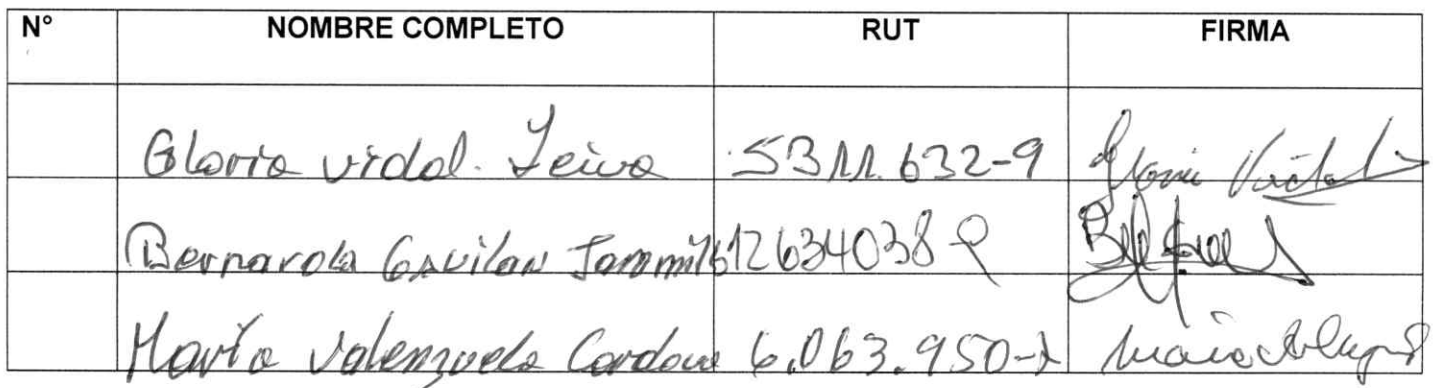 N° NOMBRE COMPLETO RUT FIRMA
Gloria vidal. Leiva 5311.632-9 Gloria Vidal
Bernarda Gavilan 12634038
Maria Valenzuela 6.063.950- Maria